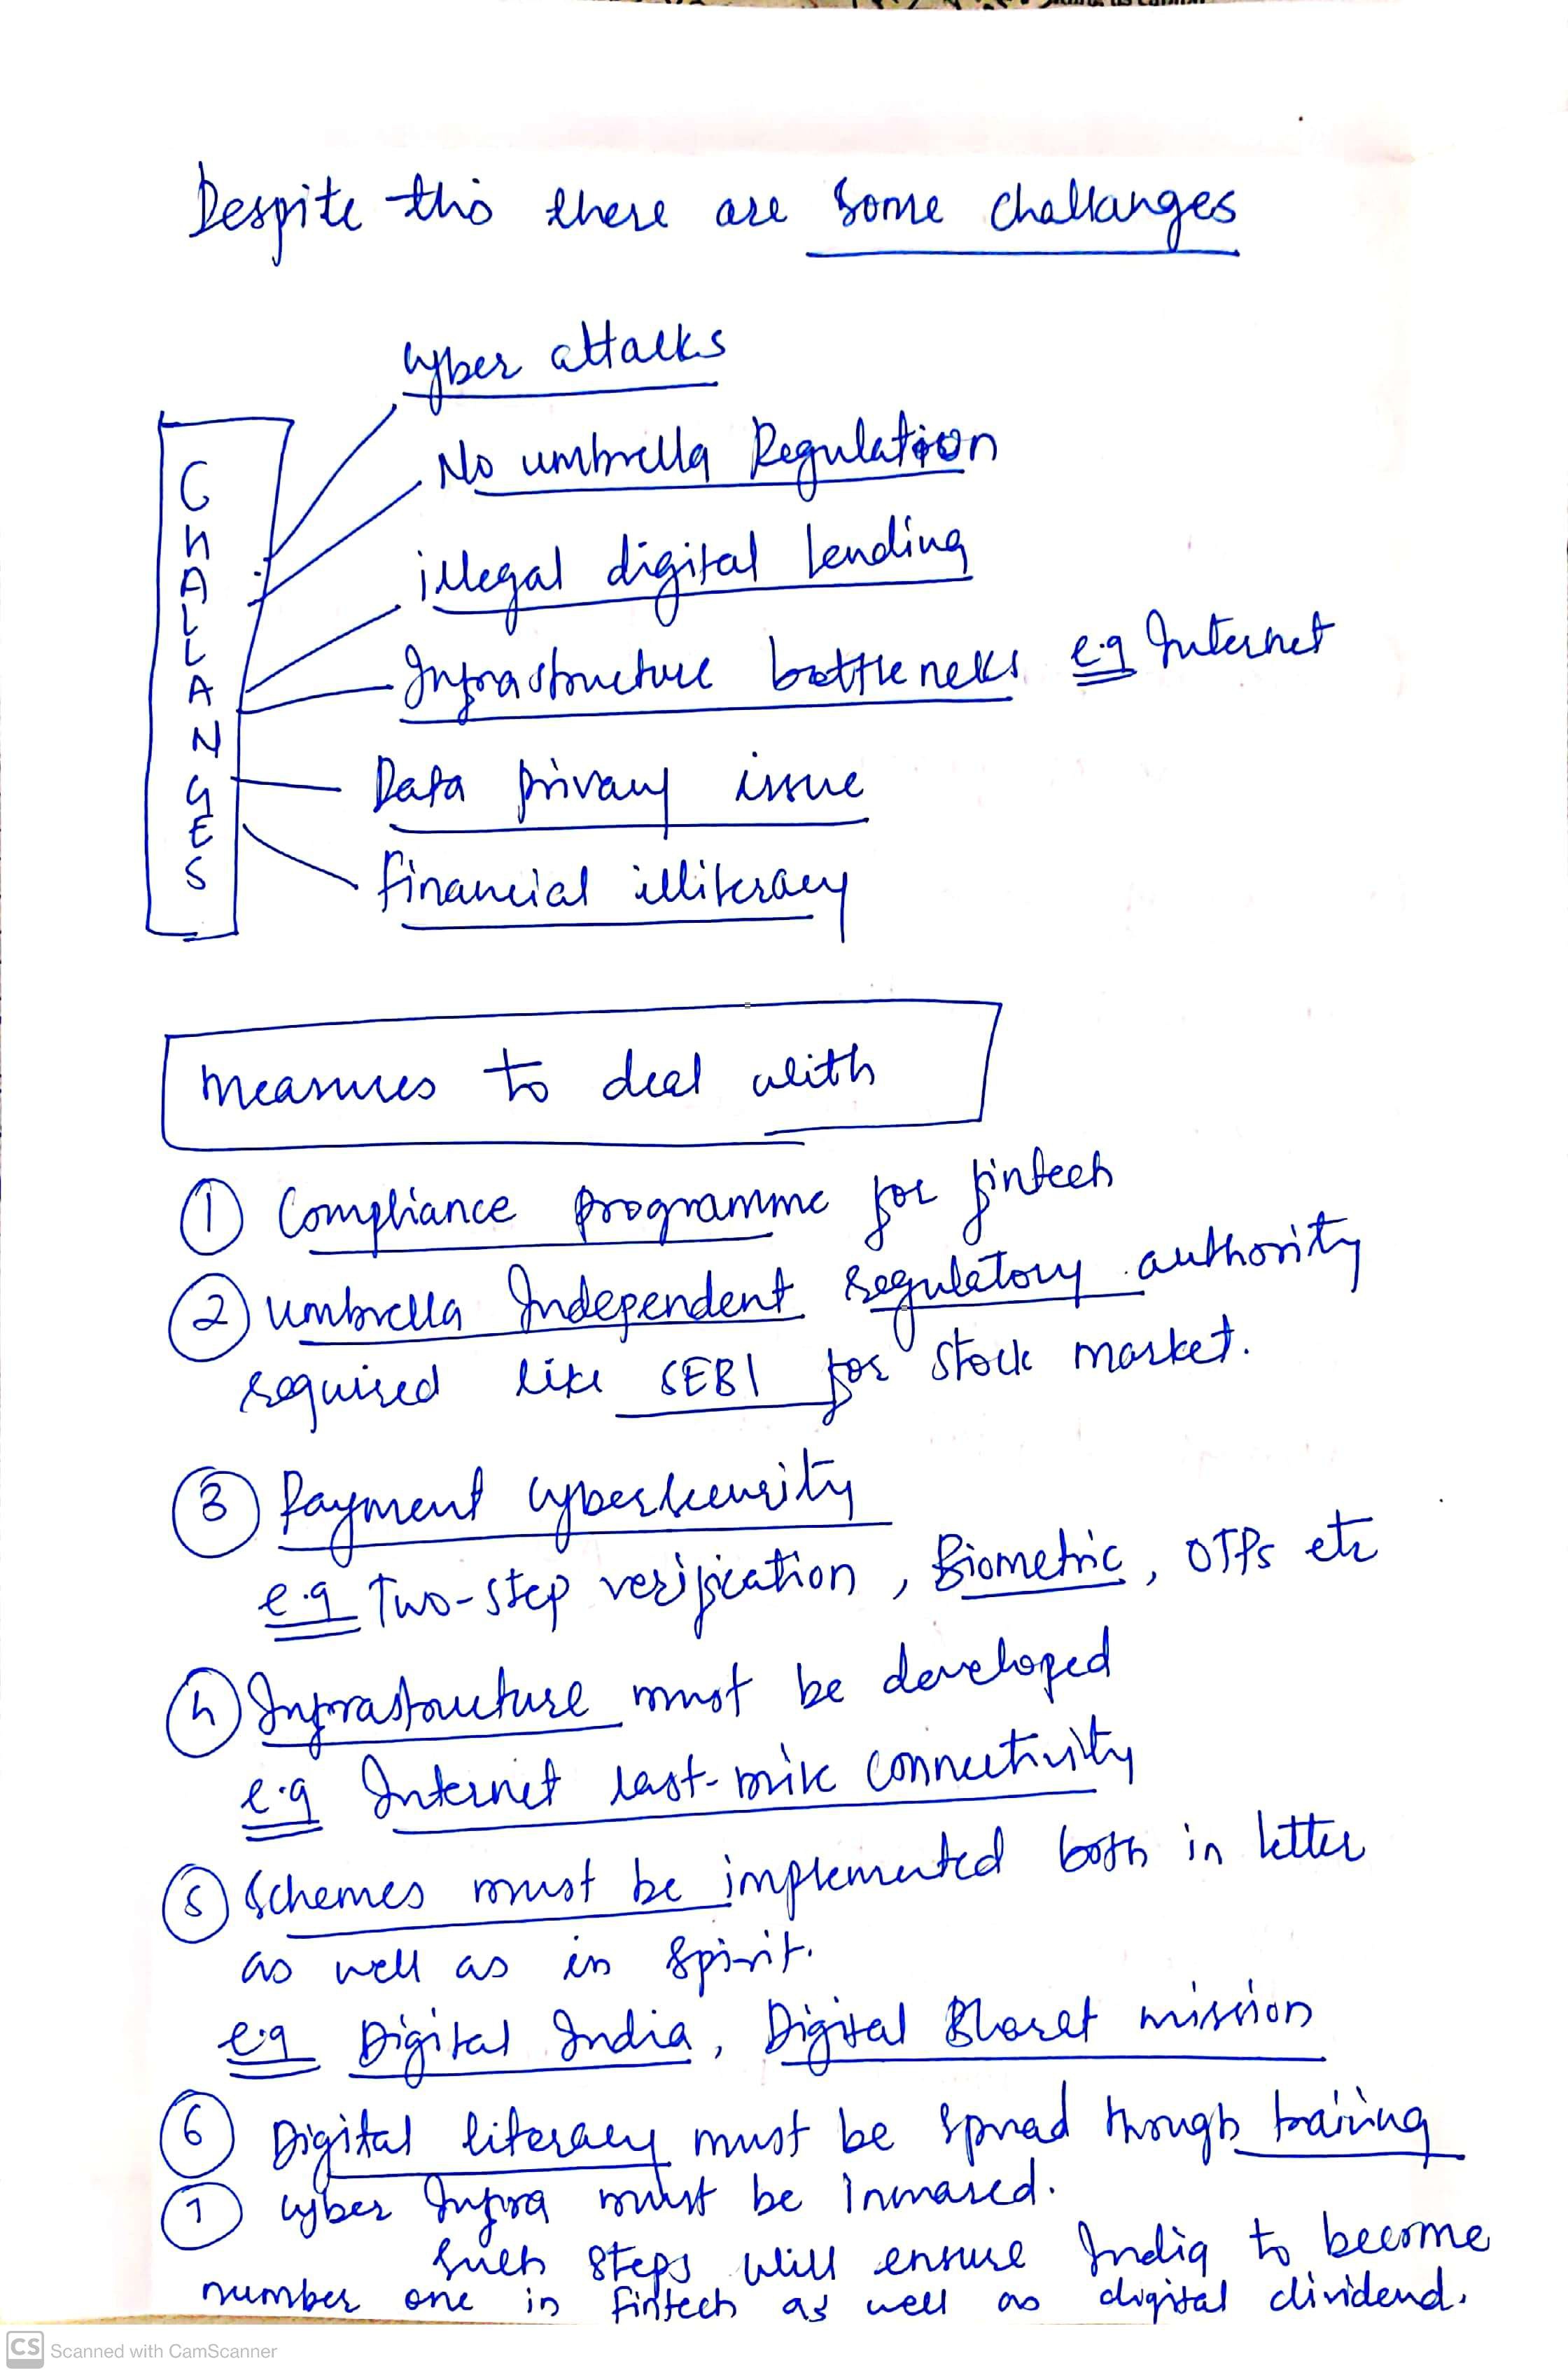 Despite this there are some challanges
CHALLANGES
cyber attacks
No umbrella Regulation
illegal digital lending
Infrastructure bottlenecks e.g Internet
Data privacy issue
financial illiteracy
measures to deal with
① Compliance programme for fintech
② umbrella Independent regulatory authority
required like SEBI for stock market.
③ Payment cybersecurity
e.g Two-step verification, Biometric, OTPs etc
④ Infrastructure must be developed
e.g Internet last-mile connectivity
⑤ Schemes must be implemented both in letter
as well as in spirit.
e.g Digital India, Digital Bharat mission
⑥ Digital literacy must be spread through training
⑦ cyber Infra must be increased.
Such steps will ensure India to become
number one in fintech as well as digital dividend.
CS Scanned with CamScanner